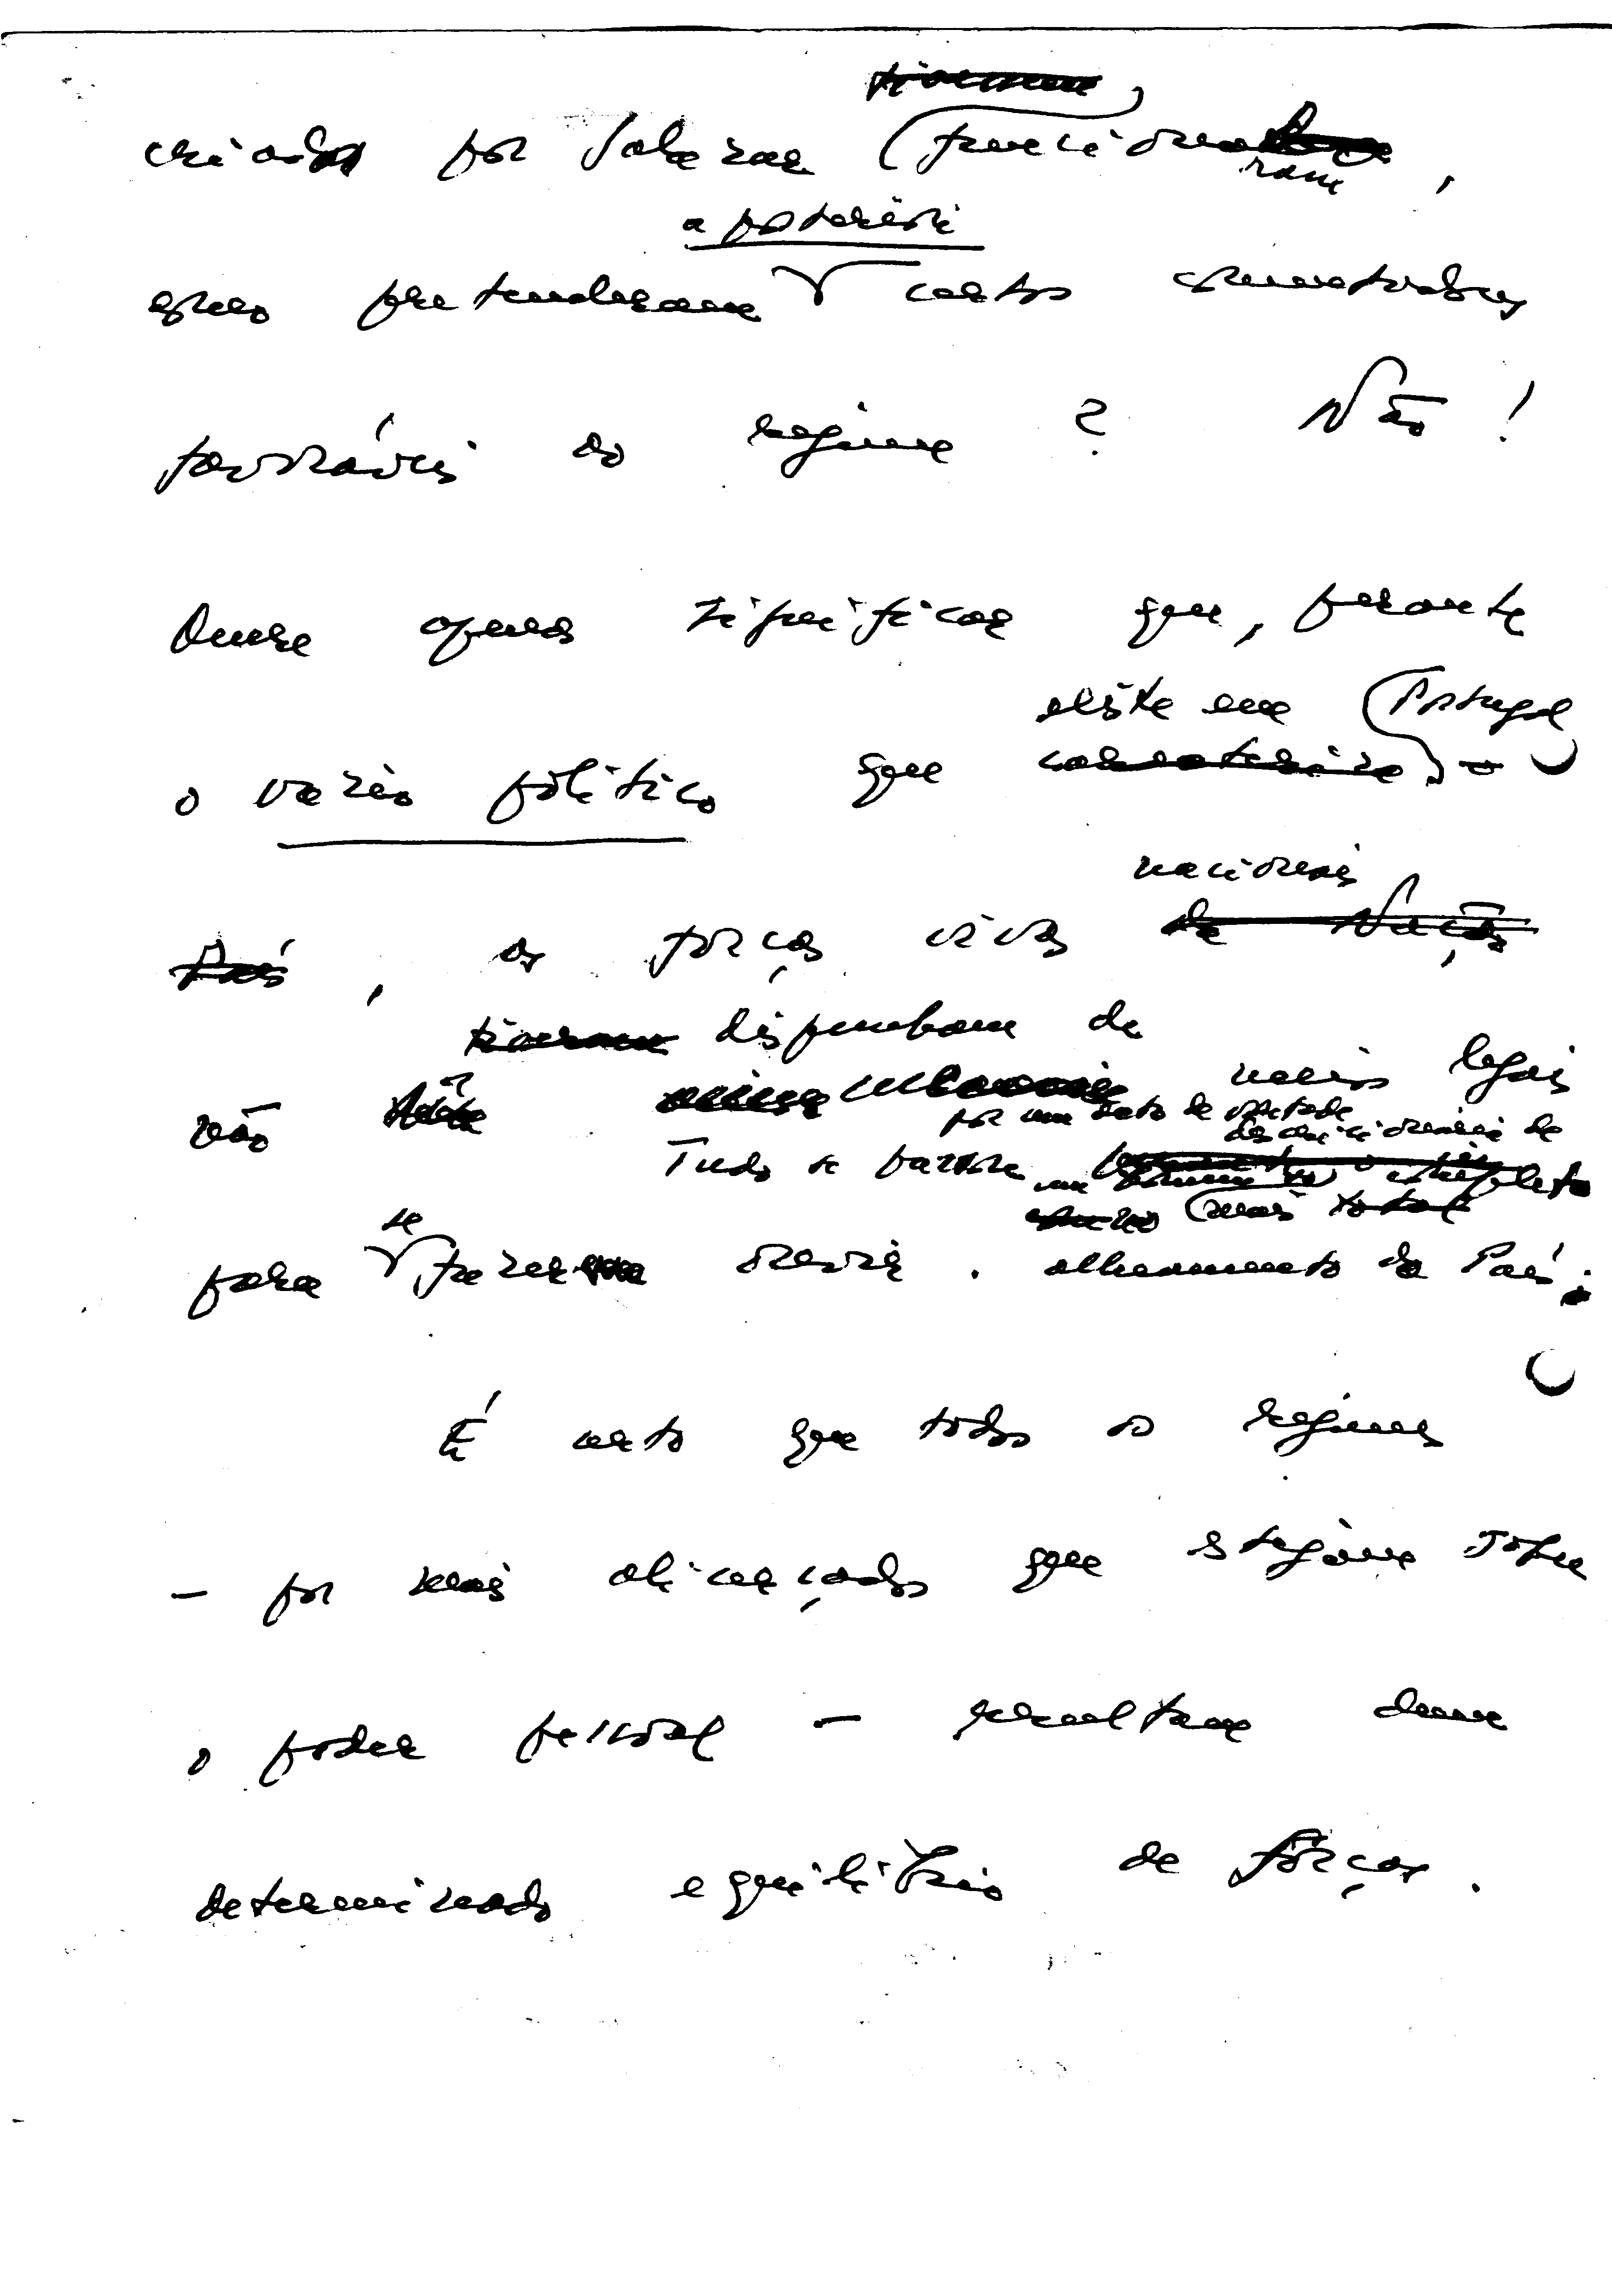 criados por Salazar funcionaram,
a posteriori
como pretenderam certos comentadores
favoráveis ao regime? Não!
Quere apenas significar que, perante
existe em Portugal
o vazio político que
nacionais
, as forças vivas
dispunham de
não meios legais
por um acto de vontade
discricionária de
Tudo se passou
se
para fazer ouvir. alheamento do País.
É certo que todos os regimes
- por mais alicerçados que estejam sobre
o poder pessoal - resultam dum
determinado equilíbrio de fôrças.